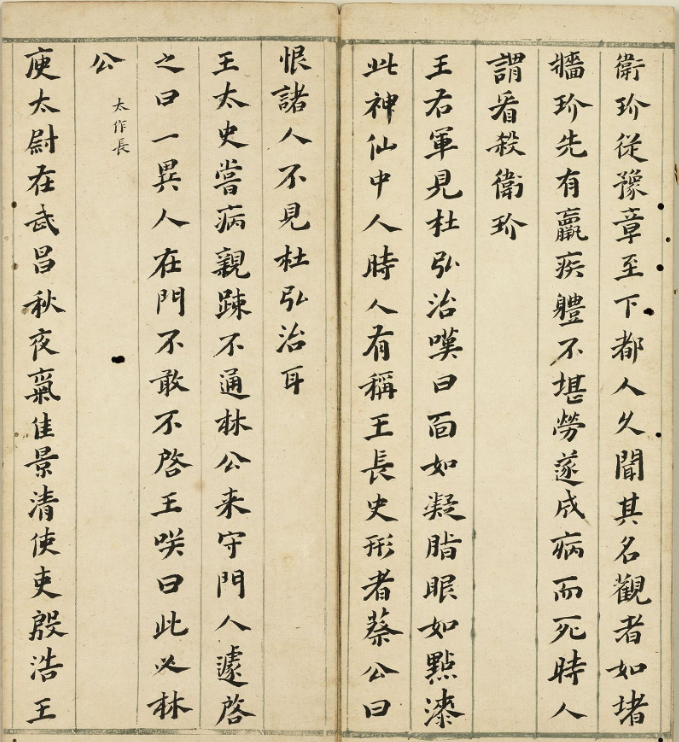 衛玠從豫章至下都人久聞其名觀者如堵
牆玠先有羸疾體不堪勞遂成病而死時人
謂看殺衛玠
王右軍見杜弘治嘆曰面如凝脂眼如點漆
此神仙中人時人有稱王長史形者蔡公曰
恨諸人不見杜弘治耳
王太史嘗病親踈不通林公来守門人遽啓
之曰一異人在門不敢不啓王咲曰此必林
公
太作長
庾太尉在武昌秋夜氣佳景清使吏殷浩王